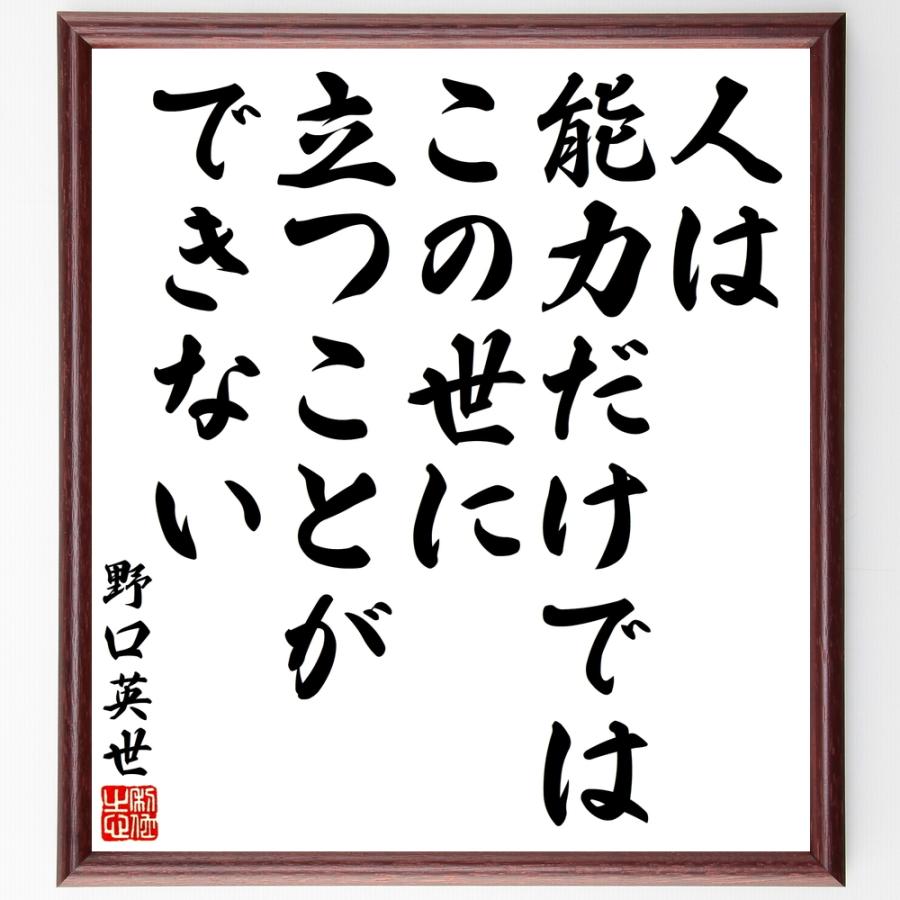 人は
能力だけでは
この世に
立つことが
できない
野口英世